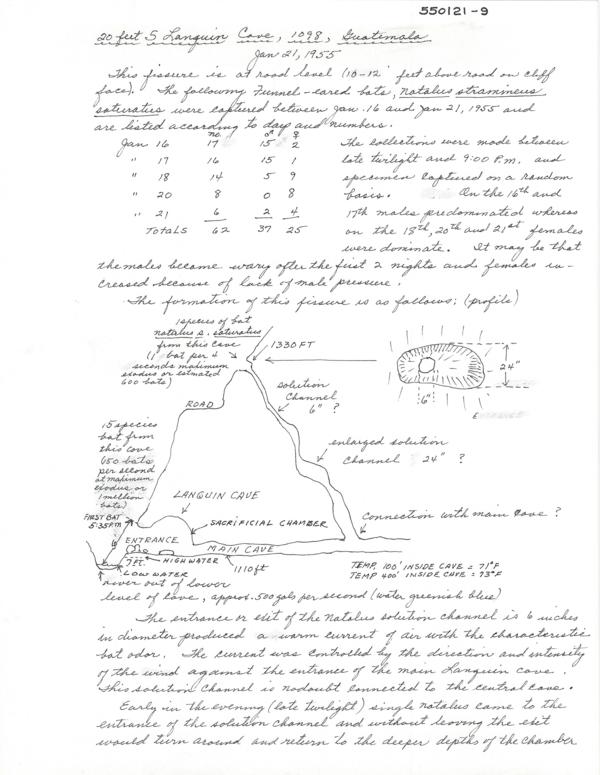 550121-9
20 feet S Languin Cave, 1098, Guatemala
Jan 21, 1955
This fissure is at road level (10-12' feet above road on cliff
face). The following Funnel-eared bats, natalus stramineus
saturatus were captured between Jan. 16 and Jan 21, 1955 and
are listed according to days and numbers.
no. ♂ ♀
Jan 16 17 15 2
" 17 16 15 1
" 18 14 5 9
" 20 8 0 8
" 21 6 2 4
TOTALS 62 37 25
The collections were made between
late twilight and 9:00 P.m. and
specimen captured on a random
basis. On the 16th and
17th males predominated whereas
on the 18th, 20th and 21st females
were dominate. It may be that
the males become wary after the first 2 nights and females in-
creased because of lack of male pressure.
The formation of this fissure is as follows; (profile)
1 species of bat
natalus s. saturatus
from this cave
(1 bat per 4
seconds maximum
exodus or estimated
600 bats)
1330 FT
24"
6"
solution
Channel
6" ?
ROAD
enlarged solution
Channel 24" ?
15 species
bat from
this cave
650 bats
per second
at maximum
exodus or
1 million
bats)
LANGUIN CAVE
FIRST BAT
5:35 P.M
SACRIFICIAL CHAMBER
Connection with main cave?
ENTRANCE
MAIN CAVE
HIGH WATER
7 FT.
1110 ft
LOW WATER
TEMP. 100' INSIDE CAVE = 71°F
TEMP 400' INSIDE CAVE = 73°F
river out of lower
level of cave, approx. 500 gals per second (water greenish blue)
The entrance or exit of the Natalus solution channel is 6 inches
in diameter produced a warm current of air with the characteristic
bat odor. The current was controlled by the direction and intensity
of the wind against the entrance of the main Languin cave.
This solution channel is nodoubt connected to the central cave.
Early in the evening (late twilight) single natalus came to the
entrance of the solution channel and without leaving the exit
would turn around and return to the deeper depths of the chamber